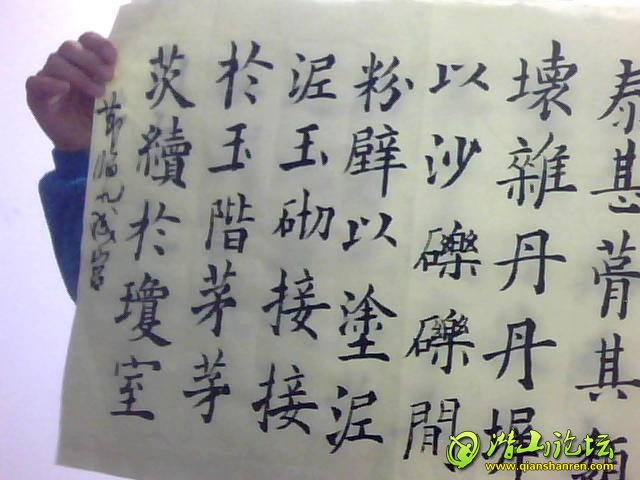 泰甚葺其頹
壞雜丹丹墀
以沙礫礫間
粉壁以塗泥
泥玉砌接接
於玉階茅茅
茨續於瓊室
節臨九成宮
潜山论坛
www.qianshanren.com